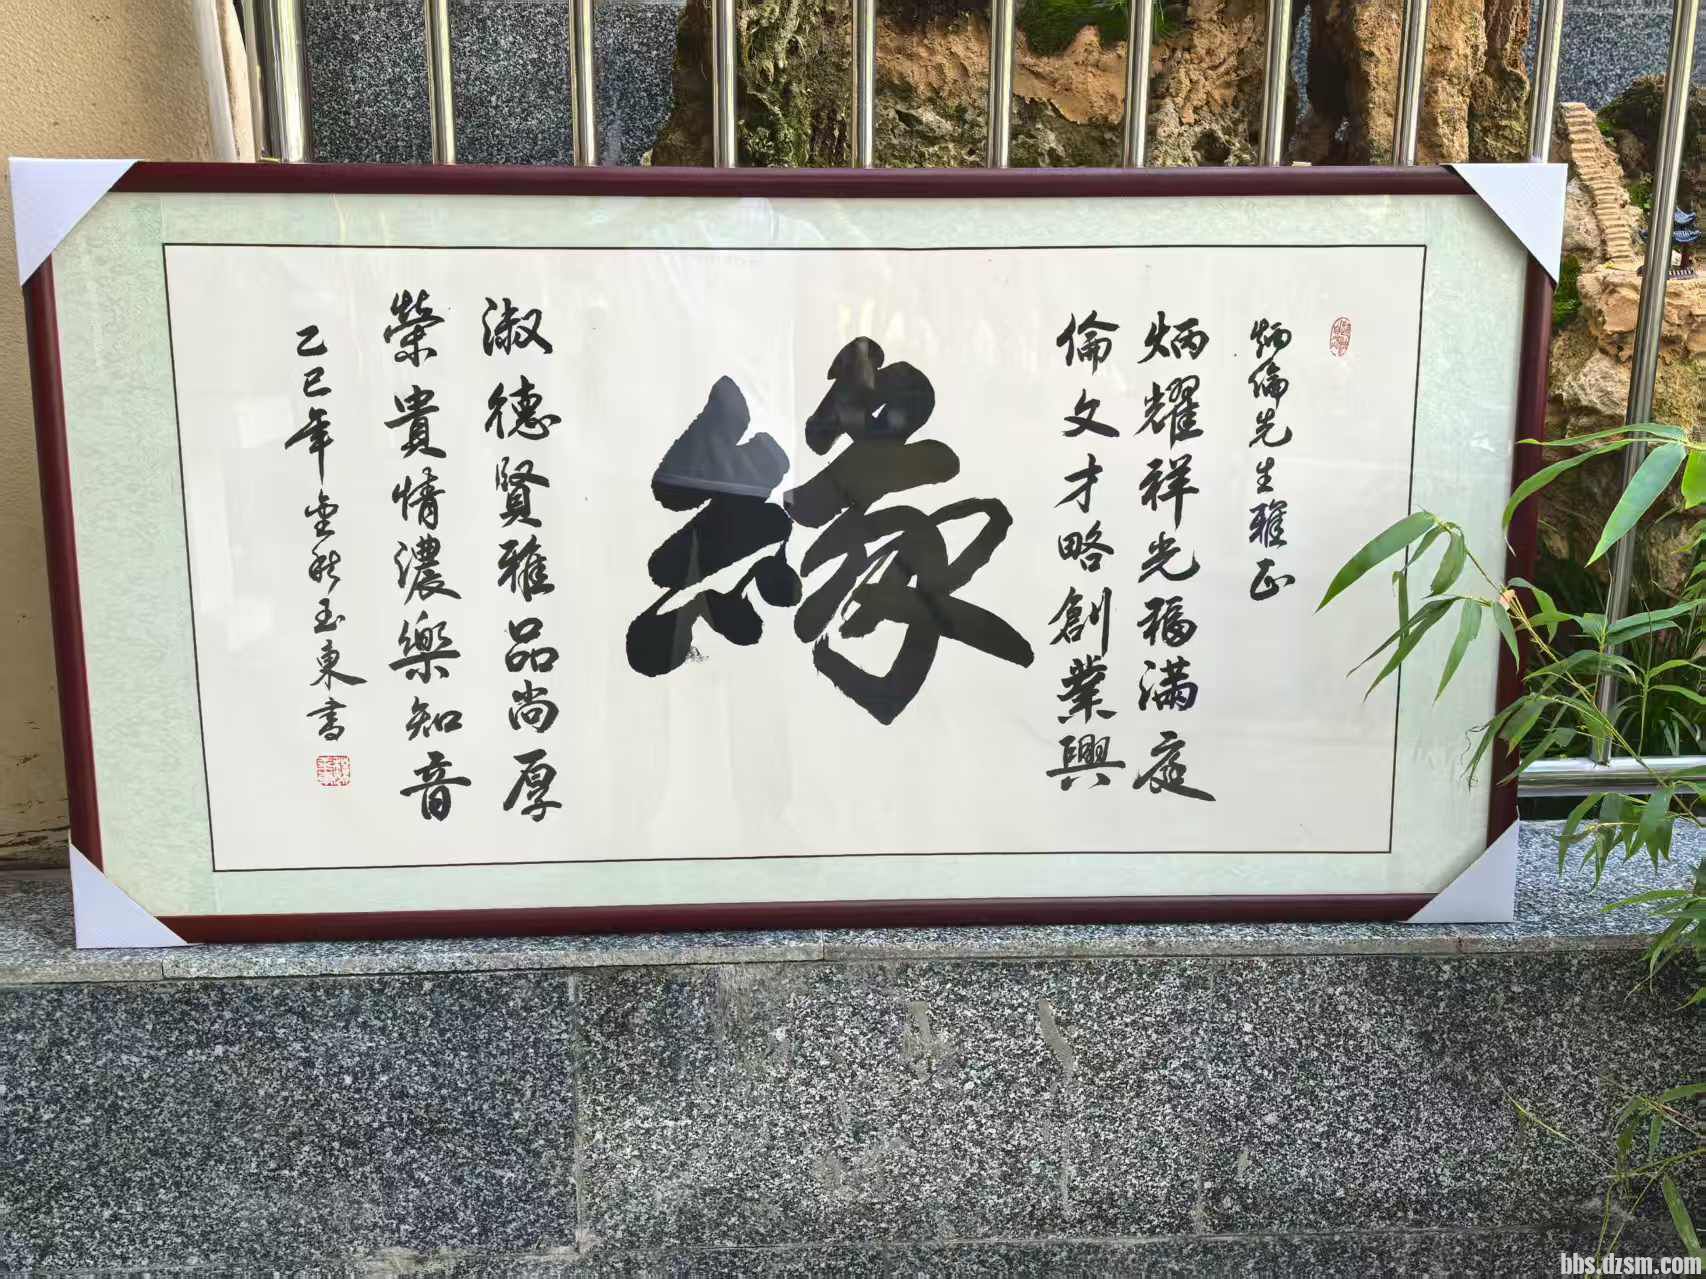 炳倫先生雅正
炳耀祥光福满庭
倫文才略創業興
緣
淑德賢雅品尚厚
榮貴情濃樂知音
乙巳年金秋玉東書
bbs.dzsm.com